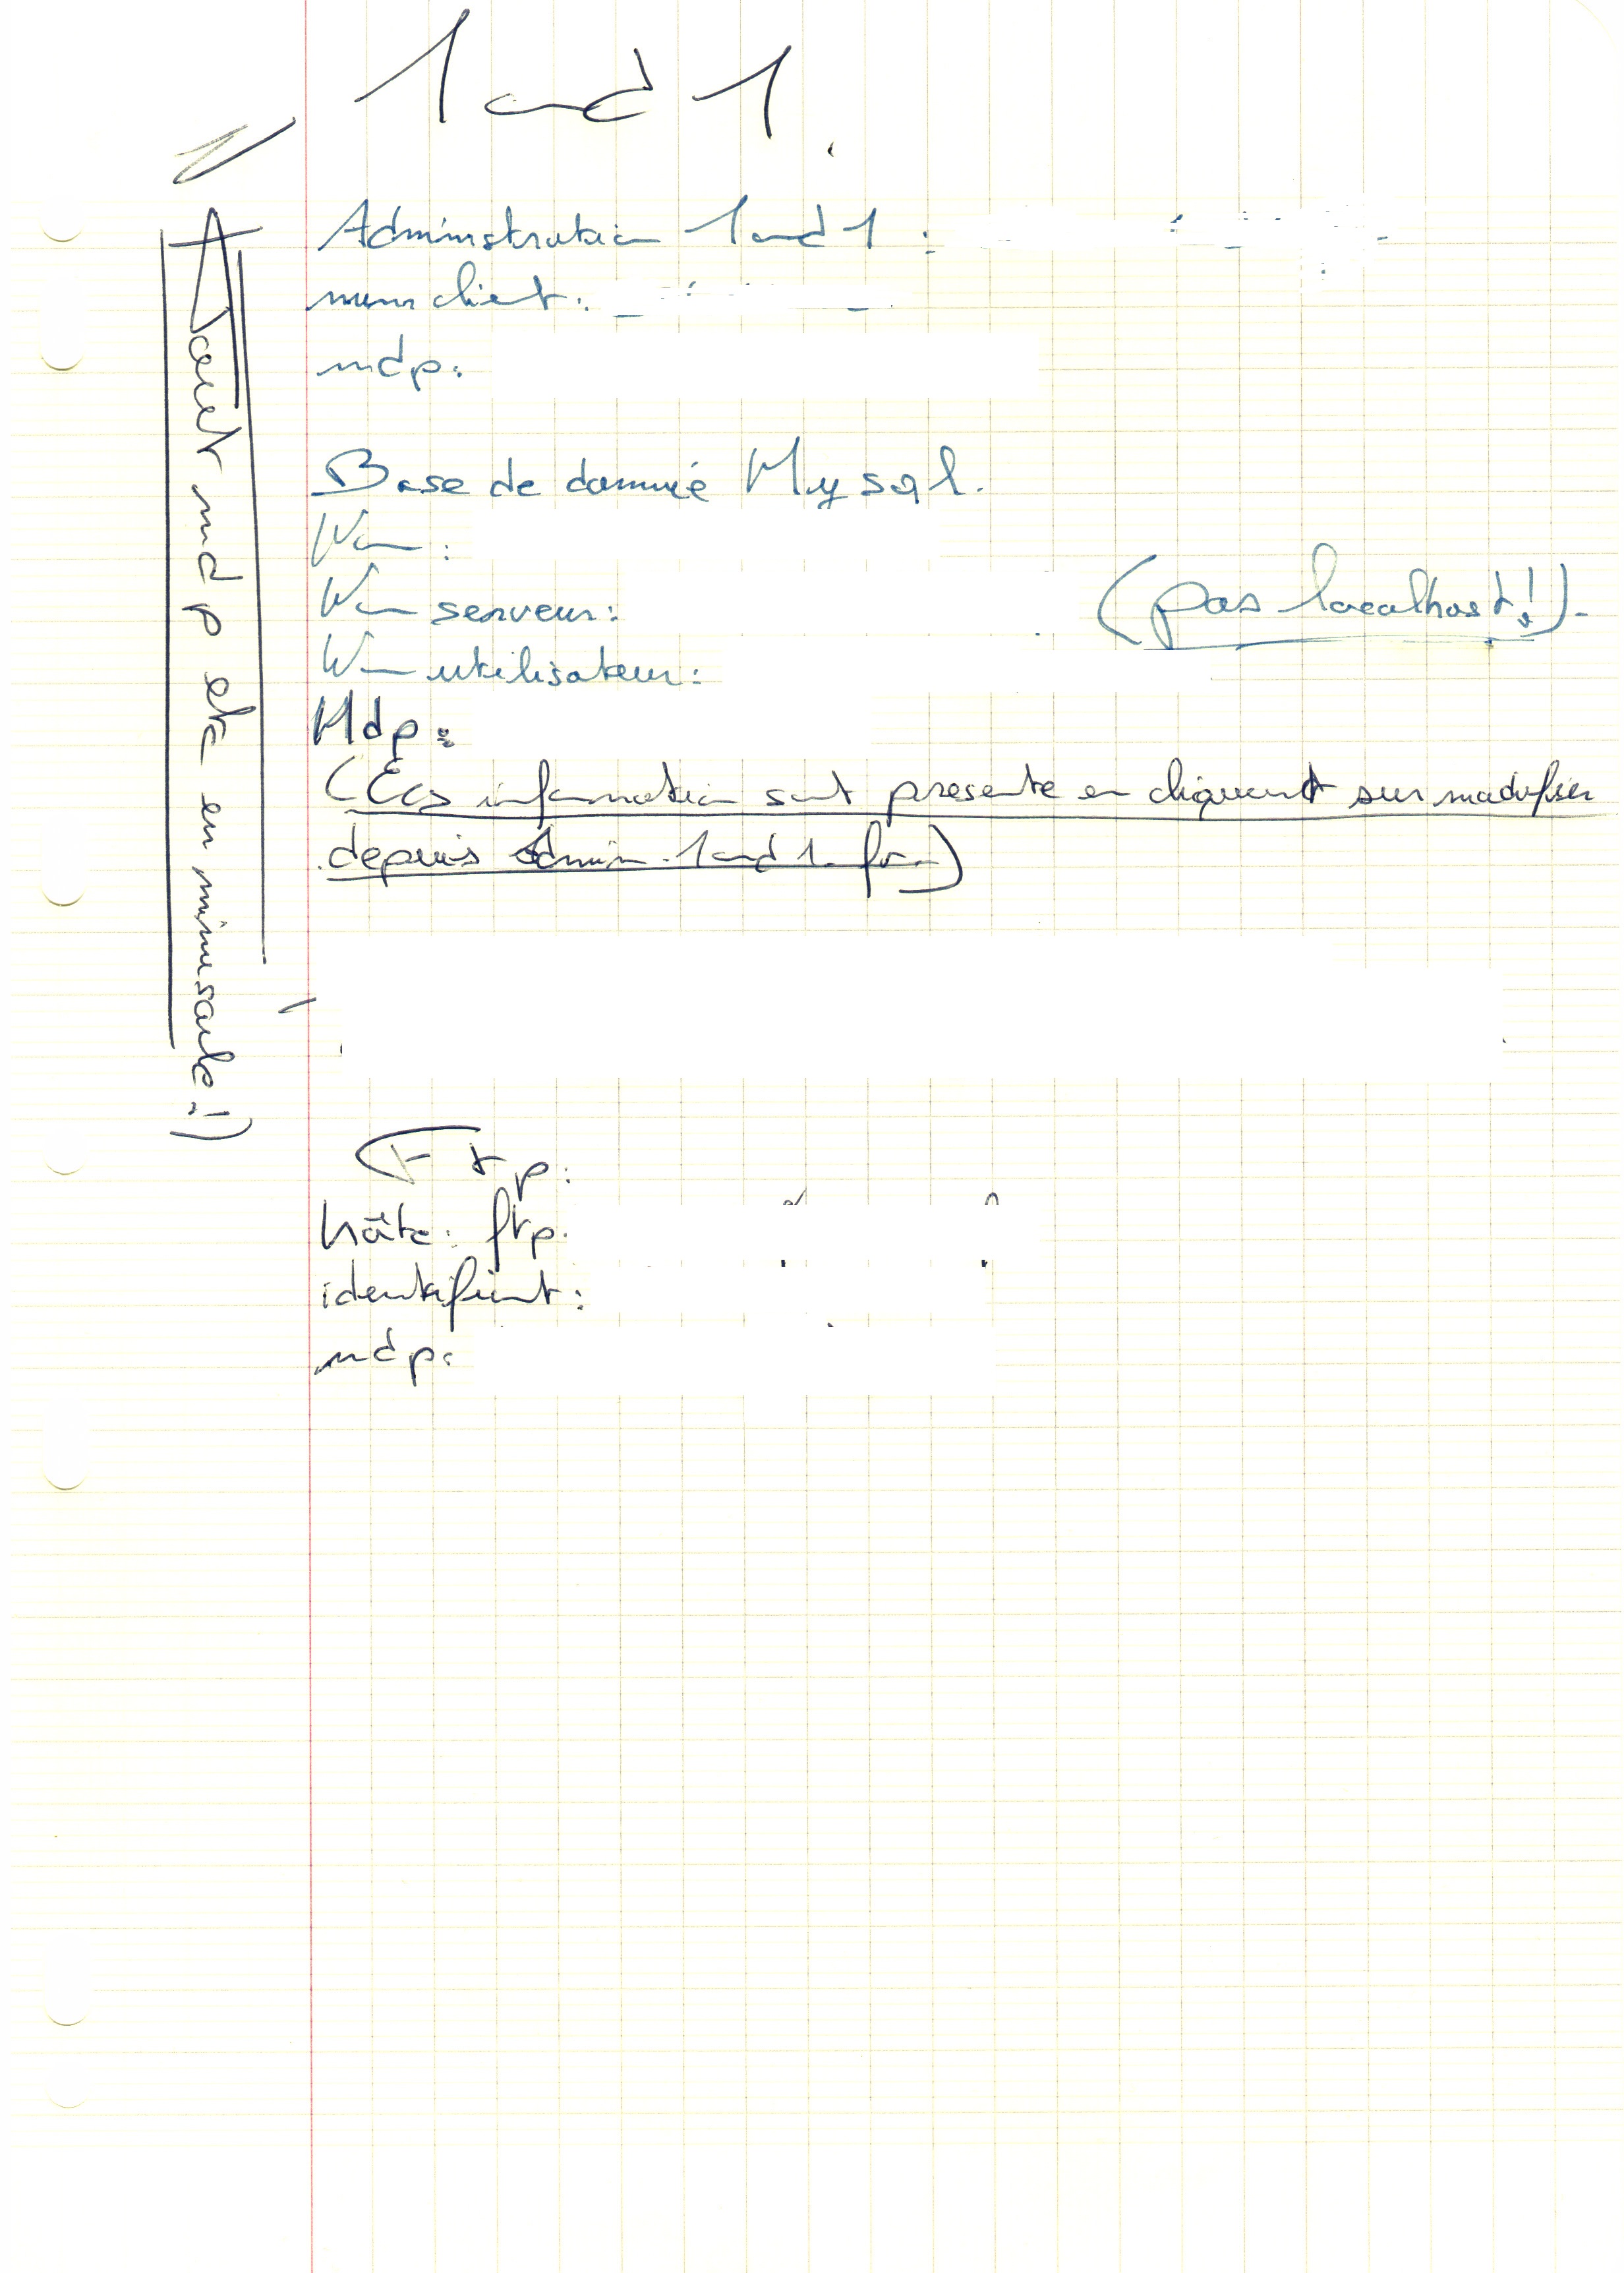 1 and 1.
Administration 1 and 1 :
num client :
mdp :
Base de donnée Mysql.
Nom :
Nom serveur : (pas localhost !).
Nom utilisateur :
Mdp :
(Ces information sont présente en cliquant sur modifier
depuis admin. 1 and 1. fr)
Ftp :
hôte : ftp.
identifiant :
mdp :
mdp etc en minuscule !)